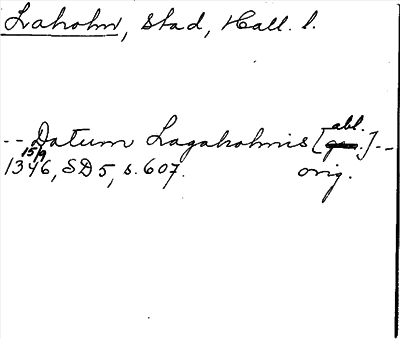 Laholm, Stad, Hall. l.
-- Datum Lagaholmis [abl.] --
15/9 1346, SD 5, s. 607. orig.